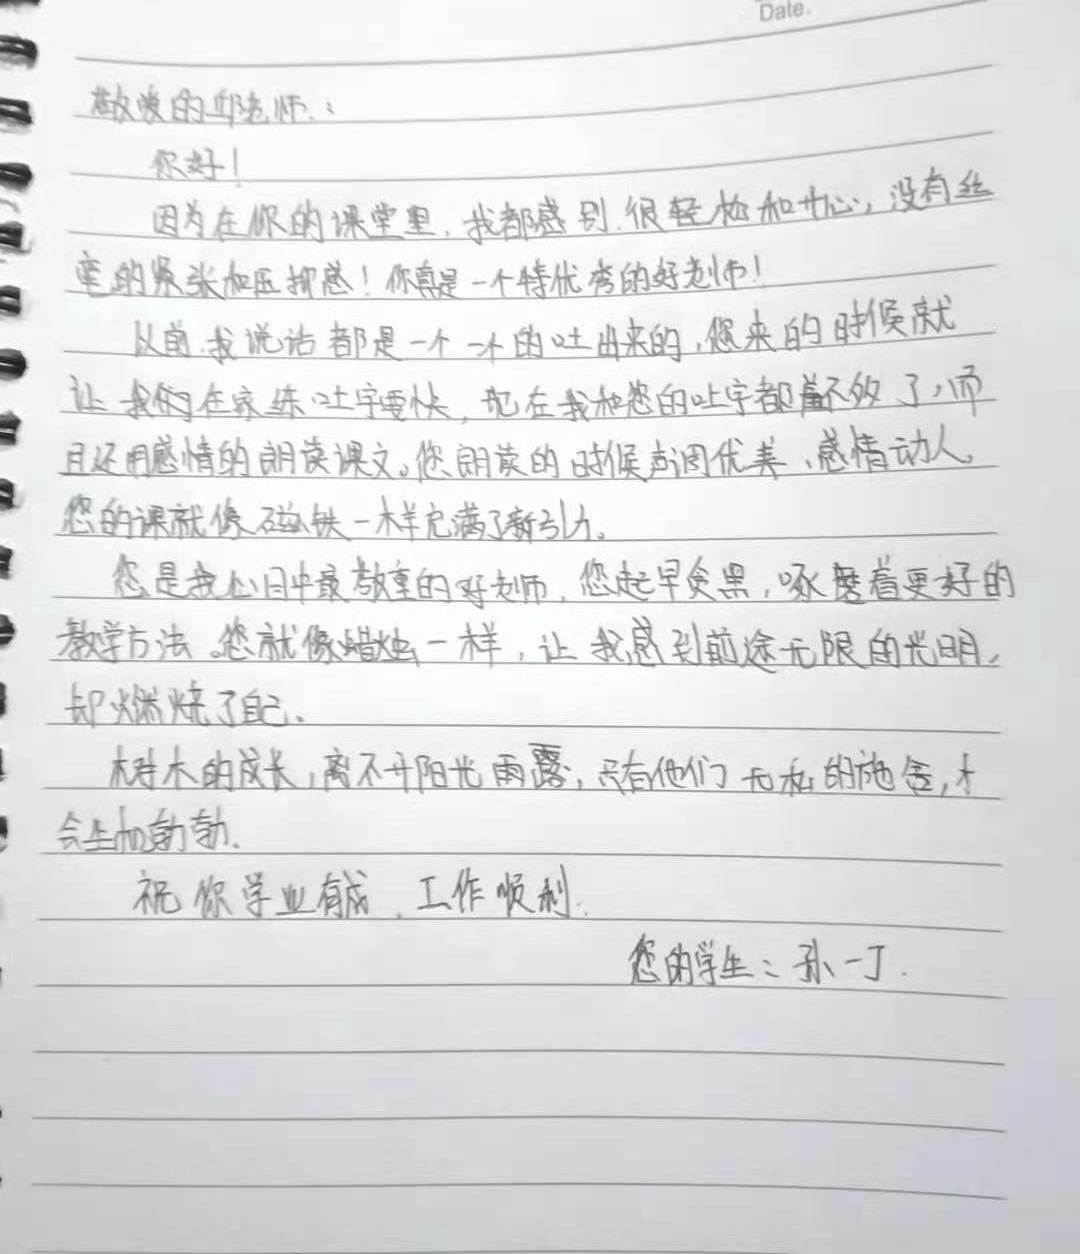 Date.
敬爱的邱老师：
你好！
因为在你的课堂里，我都感到很轻松和开心，没有丝
毫的紧张和压抑感！你真是一个特优秀的好老师！
从前，我说话都是一个一个的吐出来的，您来的时候就
让我们在家练吐字要快，现在我和您的吐字都差不多了，而
且还用感情的朗读课文。您朗读的时候声调优美，感情动人。
您的课就像磁铁一样充满了新引力。
您是我心目中最敬重的好老师，您起早贪黑，啄磨着更好的
教学方法。您就像蜡烛一样，让我感到前途无限的光明，
却燃烧了自己。
树木的成长，离不开阳光雨露，只有他们无私的施舍，才
会生机勃勃。
祝你学业有成，工作顺利.
您的学生：孙一丁.